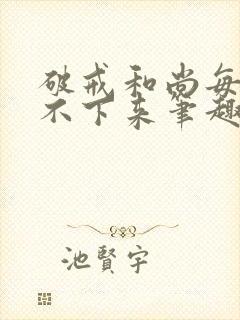 破戒和尚每
不下来笔趣
池贤宇